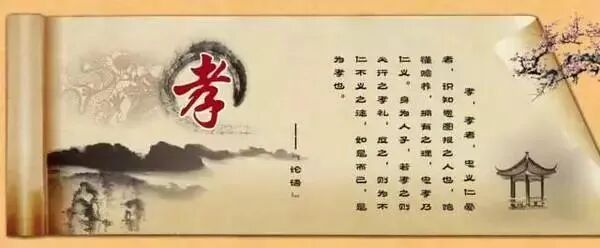 孝
孝，孝者，忠义仁爱
者，识知恩图报之人也，
懂赡养，拥有之理，忠孝乃
仁义。身为人子，若孝之则
行之孝礼，应之，则为不
仁不义之途，如是而已，是
为孝也。
——『论语』